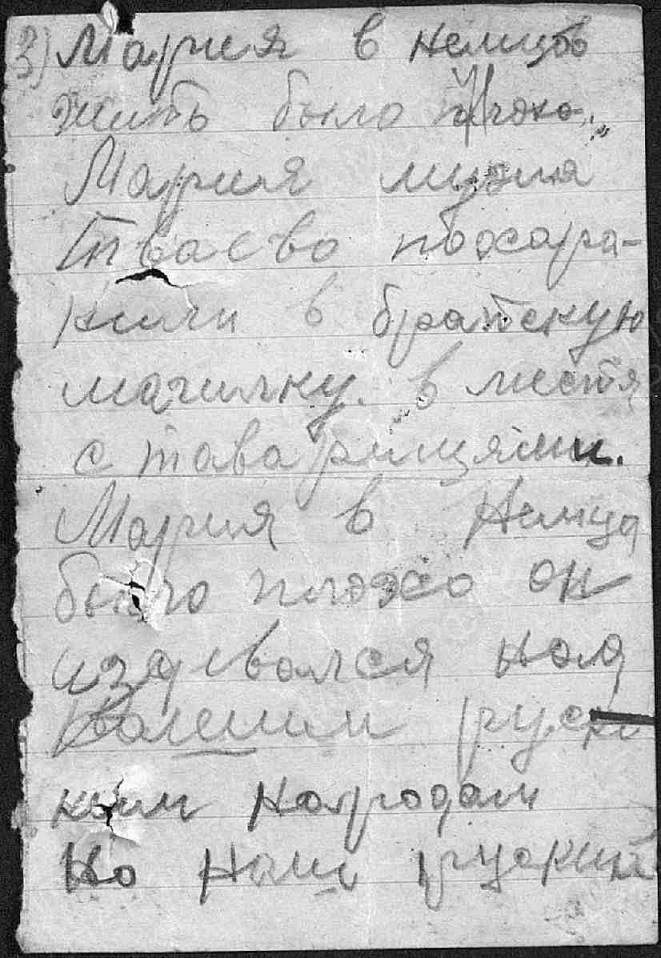 3) Мария в немцов
жить было плохо.
Мария мужа
Тваево похара-
нили в братскую
магилку. в места
с таварищями.
Мария в Немца
было плохо он
издевался над
Вашим руск
ким народам
Но наш руский